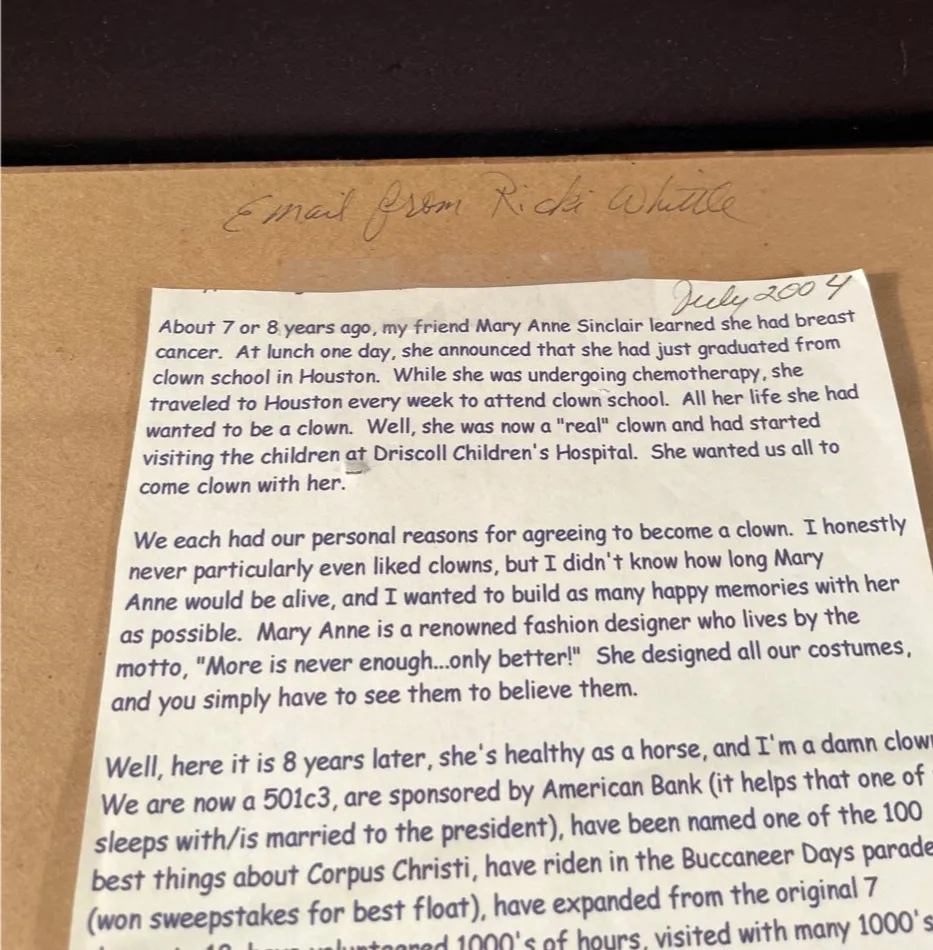 Email from Ricki Whittle
July 2004
About 7 or 8 years ago, my friend Mary Anne Sinclair learned she had breast
cancer. At lunch one day, she announced that she had just graduated from
clown school in Houston. While she was undergoing chemotherapy, she
traveled to Houston every week to attend clown school. All her life she had
wanted to be a clown. Well, she was now a "real" clown and had started
visiting the children at Driscoll Children's Hospital. She wanted us all to
come clown with her.
We each had our personal reasons for agreeing to become a clown. I honestly
never particularly even liked clowns, but I didn't know how long Mary
Anne would be alive, and I wanted to build as many happy memories with her
as possible. Mary Anne is a renowned fashion designer who lives by the
motto, "More is never enough...only better!" She designed all our costumes,
and you simply have to see them to believe them.
Well, here it is 8 years later, she's healthy as a horse, and I'm a damn clow
We are now a 501c3, are sponsored by American Bank (it helps that one of
sleeps with/is married to the president), have been named one of the 100
best things about Corpus Christi, have riden in the Buccaneer Days parade
(won sweepstakes for best float), have expanded from the original 7
volunteered 1000's of hours, visited with many 1000's